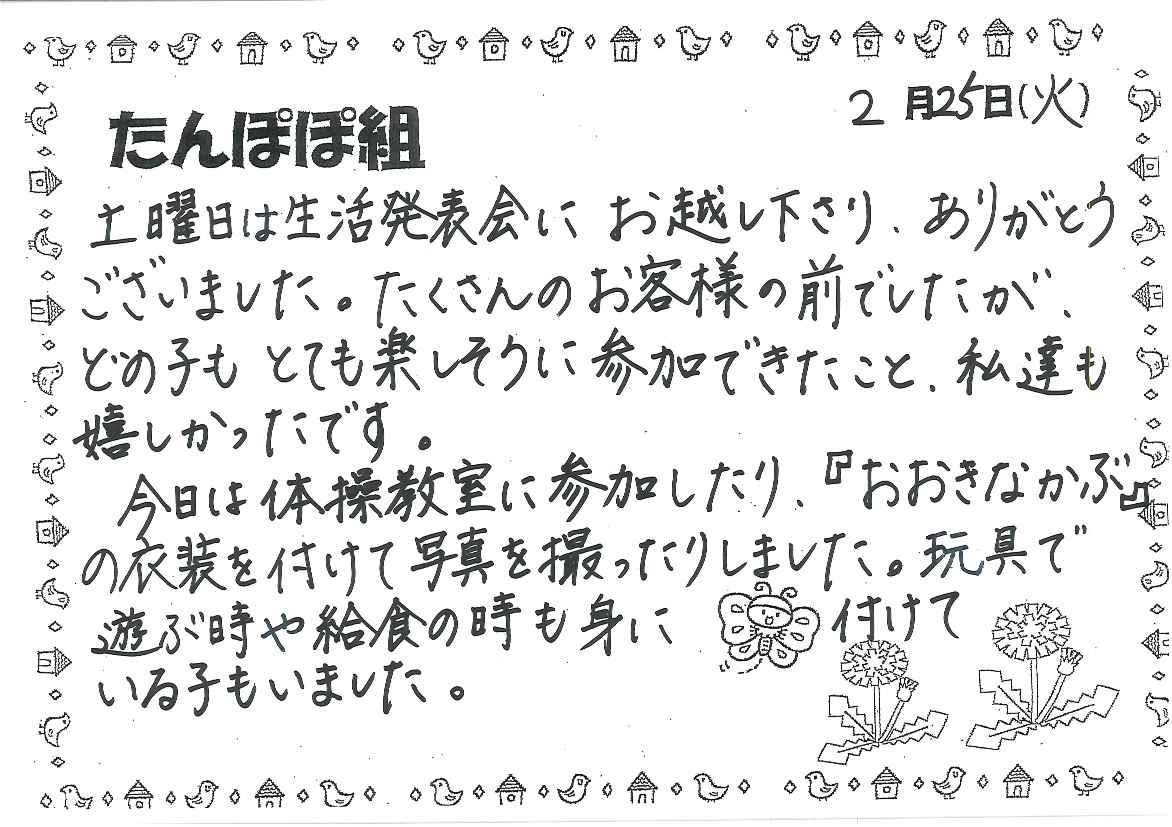 2月25日(火)
たんぽぽ組
土曜日は生活発表会に お越し下さり、ありがとう
ございました。たくさんのお客様の前でしたが、
どの子も とても楽しそうに参加できたこと、私達も
嬉しかったです。
今日は体操教室に参加したり、『おおきなかぶ』
の衣装を付けて写真を撮ったりしました。玩具で
遊ぶ時や給食の時も身に 付けて
いる子もいました。